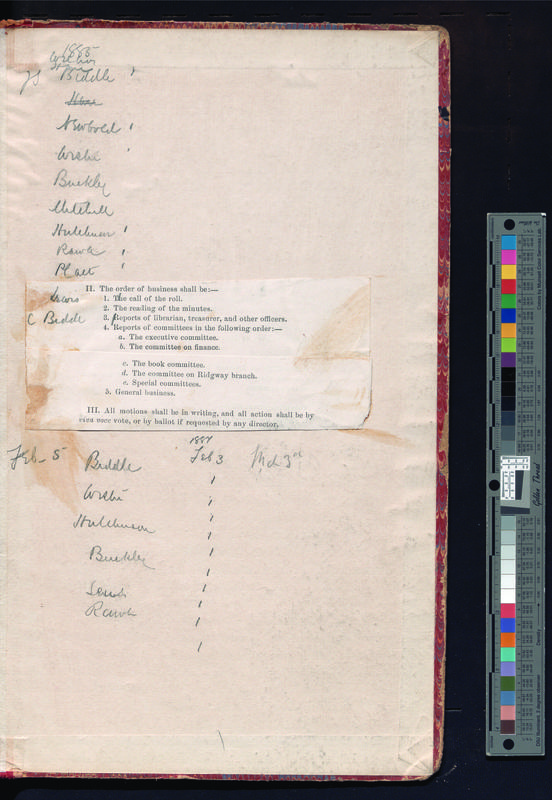 1885
Biddle '
Newbold '
Wister '
Buckley
Mitchell
Hutchinson '
Rawle '
Platt '
Lewis
C Biddle
II. The order of business shall be:—
1. The call of the roll.
2. The reading of the minutes.
3. Reports of librarian, treasurer, and other officers.
4. Reports of committees in the following order:—
a. The executive committee.
b. The committee on finance.
c. The book committee.
d. The committee on Ridgway branch.
e. Special committees.
5. General business.
III. All motions shall be in writing, and all action shall be by
viva voce vote, or by ballot if requested by any director.
1887
Feb- 5 Biddle Feb 3 Mch 3rd
Wister
Hutchinson
Buckley
Lewis
Rawle